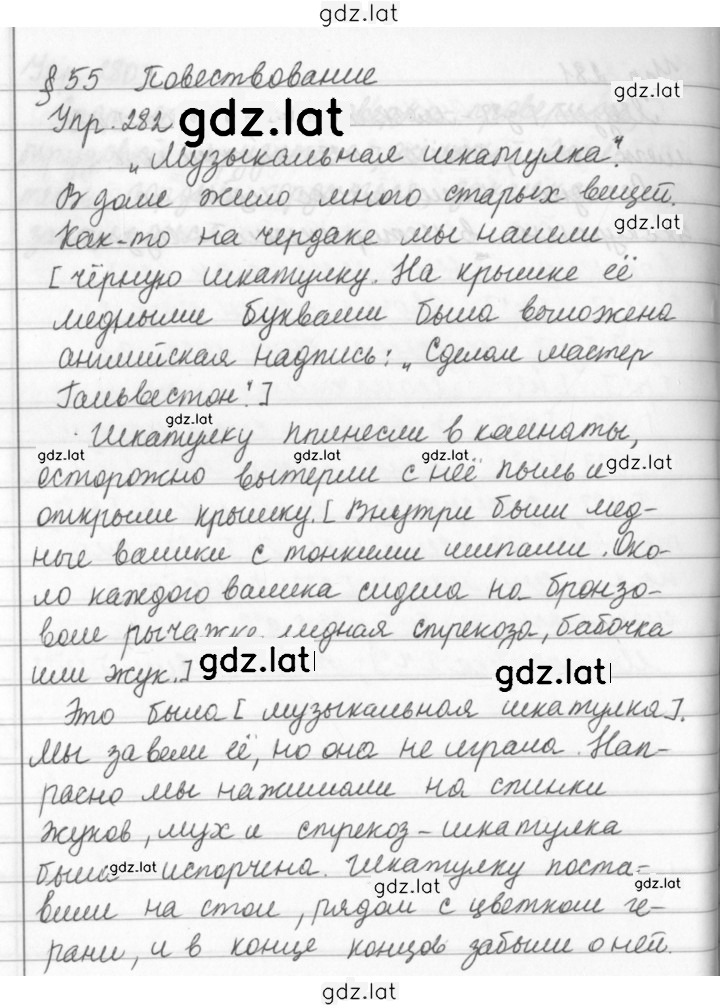 gdz.lat
§ 55 Повествование
gdz.lat
Упр. 282
gdz.lat
„Музыкальная шкатулка".
В доме жило много старых вещей.
gdz.lat
Как-то на чердаке мы нашли
[чёрную шкатулку. На крышке её
медными буквами была выложена
английская надпись: „Сделал мастер
Гальвестон".]
gdz.lat
Шкатулку принесли в комнаты,
gdz.lat gdz.lat gdz.lat gdz.lat
осторожно вытерли с неё пыль и
открыли крышку. [Внутри были мед-
ные валики с тонкими шипами. Око-
ло каждого валика сидела на бронзо-
вом рычажке медная стрекоза, бабочка
или жук.]
gdz.lat gdz.lat
Это была [музыкальная шкатулка].
Мы завели её, но она не играла. Нап-
расно мы нажимали на спинки
жуков, мух и стрекоз - шкатулка
была испорчена. Шкатулку поста-
gdz.lat gdz.lat gdz.lat
вили на стол, рядом с цветком ге-
рани, и в конце концов забыли о ней.
gdz.lat